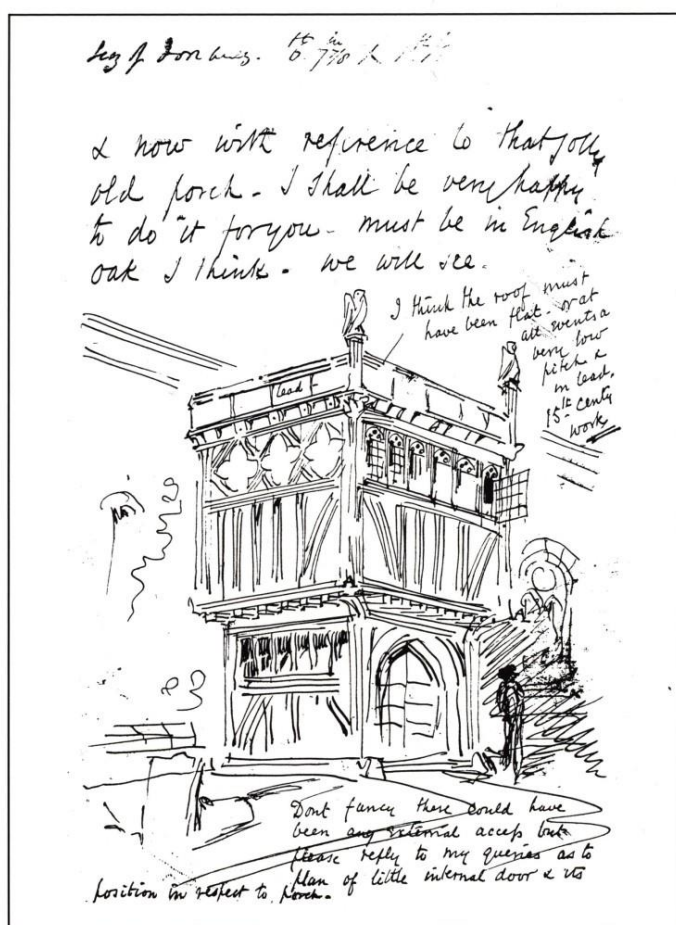 & now with reference to that jolly
old porch - I shall be very happy
to do it for you - must be in English
oak I think. we will see.
I think the roof must
have been flat - or at
all events a
very low
pitch &
in lead.
15th centy
work
lead
Dont fancy there could have
been any external access but
please reply to my queries as to
plan of little internal door & its
position in respect to porch.